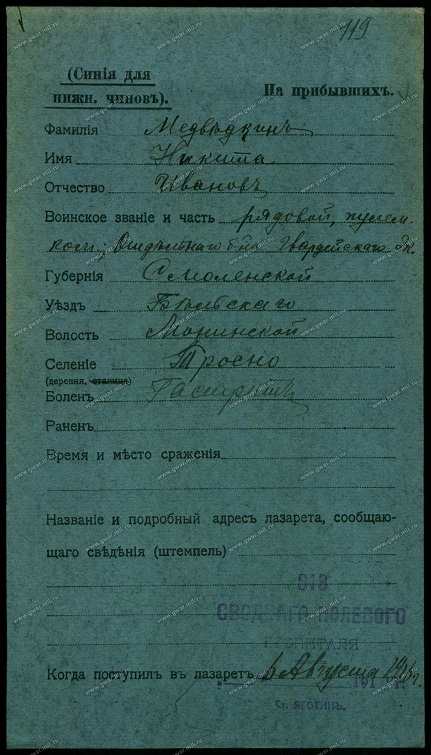 119
(Синія для
нижн. чиновъ).
На прибывшихъ.
Фамилія Медвѣдкинъ
Имя Никита
Отчество Ивановъ
Воинское званіе и часть рядовой, пулем.
ком; Отдѣльнаго б-на Гвардейскаго Эк.
Губернія Смоленской
Уѣздъ Бѣльскаго
Волость Монинской
Селеніе Тросно
(деревня, станица)
Боленъ Гастритъ
Раненъ
Время и мѣсто сраженія
Названіе и подробный адресъ лазарета, сообщаю-
щаго свѣдѣнія (штемпель)
СВОДНАГО ПОЛЕВОГО
ГОСПИТАЛЯ
Когда поступилъ въ лазаретъ 6 Августа 1915 г.
ст. ЯГОТИНЪ
www.gwar.mil.ru